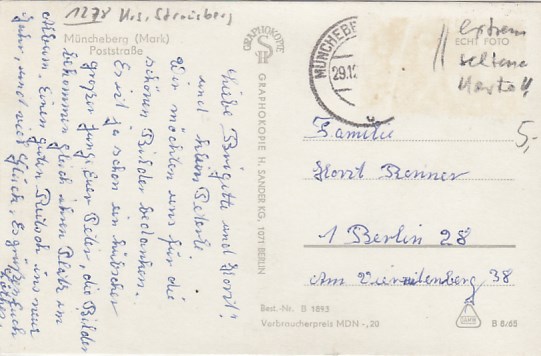 1278 Krs. Strausberg
Müncheberg (Mark)
Poststraße
Liebe Brigitte und Horst!
und klein Peterle
Wir möchten uns für die
schönen Bilder bedanken.
Es ist ja schon ein hübscher
großer Junge, Euer Peter, die Bilder
bekommen gleich ihren Platz im
Album. Einen guten Rutsch ins neue
Jahr, und viel Glück, Es grüßen Euch
GRAPHOKOPIE
GRAPHOKOPIE H. SANDER KG, 1071 BERLIN
MÜNCHEBE
29.12
extrem
ECHT FOTO
seltene
Karte!!
5,-
Familie
Horst Renner
1 Berlin 28
Am Vierrutenberg 38
Best.-Nr. B 1893
Verbraucherpreis MDN -,20
B 6/65